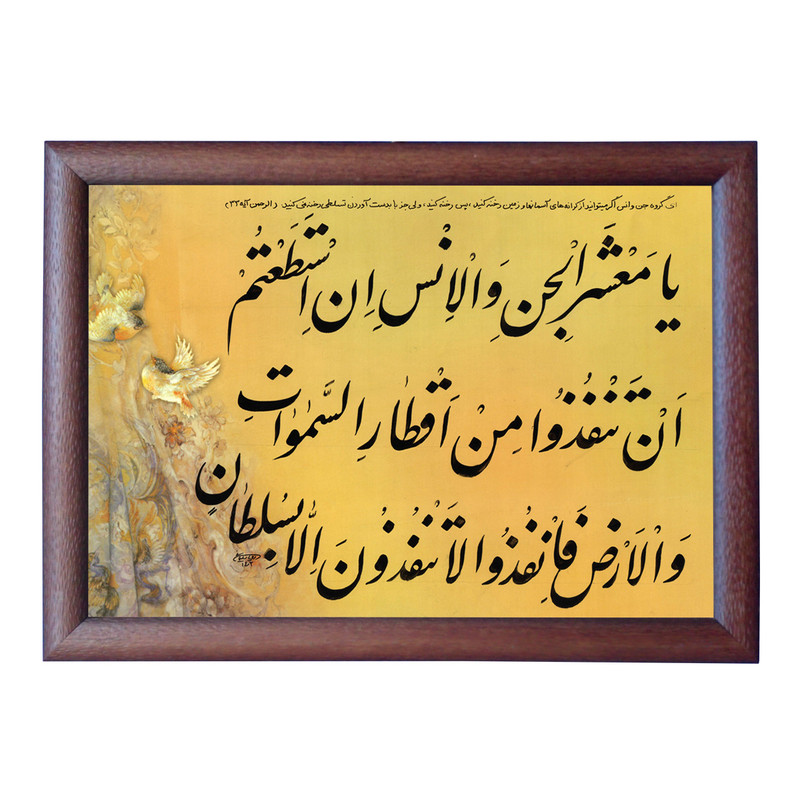 ای گروه جن و انس اگر میتوانید از کرانه های آسمانها و زمین رخنه کنید، پس رخنه کنید، ولی جز با بدست آوردن تسلطی رخنه نمی کنید (الرحمن آیه ۳۳)
یا مَعْشَرَ الْجِن وَالْاِنْس اِن اِسْتَطَعْتُمْ
اَنْ تَنْفُذُوا مِنْ اَقْطٰارِ السَّمٰوٰاتِ
وَالْاَرْض فَانْفُذُوا لاتَنْفُذُونَ اِلّٰا بِسُلْطٰانٍ